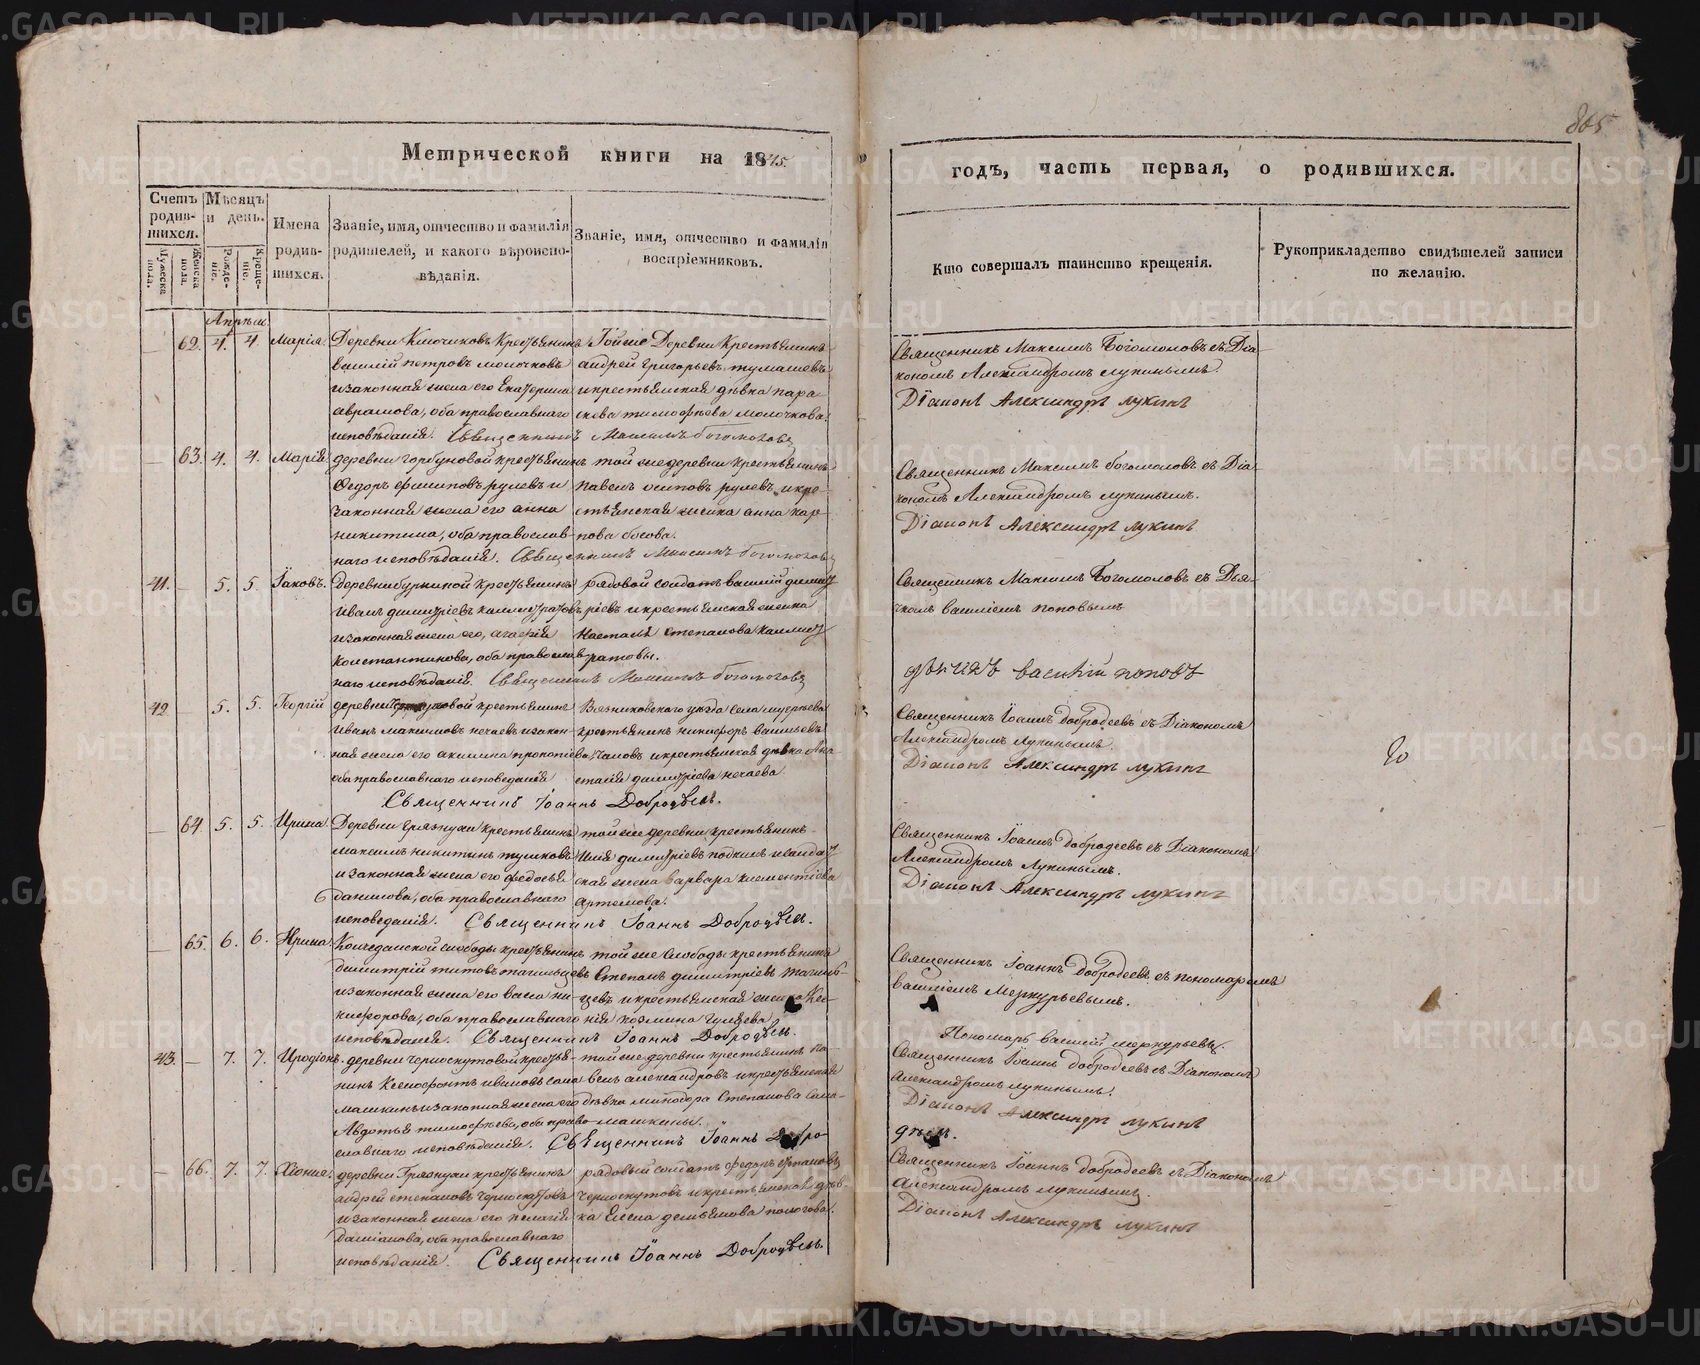 865
Метрической книги на 1845
годъ, часть первая, о родившихся.
Счетъ родив-шихся.
Мужеска пола.
Женска пола.
Мѣсяцъ и день.
Рожде-нiе.
Креще-нiе.
Имена родив-шихся.
Званiе, имя, отчество и фамилiя родителей, и какого вѣроиспо-вѣданiя.
Званiе, имя, отчество и фамилiя воспрiемниковъ.
Кто совершалъ таинство крещенiя.
Рукоприкладство свидѣтелей записи по желанiю.
Апрѣль
62. 4. 4. Марiя. Деревни Крестьянинъ
василiй петровъ молочковъ
и законная жена его Екатерина
аврамова, оба православнаго
исповѣданiя. Священникъ Максимъ Богомоловъ
Той же Деревни Крестьянинъ
андрей григорьевъ
и крестьянская дѣвка пара
скева тимофѣева молочкова.
Священникъ Максимъ Богомоловъ съ Дiа-
кономъ Александромъ лукинымъ
Дiаконъ Александръ лукинъ
63. 4. 4. Марiя деревни горбуновой крестьянинъ
Ѳедоръ рулевъ и
законная жена его анна
никитина, оба православ-
наго исповѣданiя. Священникъ Максимъ Богомоловъ
той же деревни крестьянинъ
павелъ осиповъ рулевъ и кре-
стьянская женка анна кар-
пова
Священникъ Максимъ богомоловъ съ Дiа-
кономъ Александромъ лукинымъ.
Дiаконъ Александръ лукинъ
41. 5. 5. Iаковъ. деревни буриной крестьянинъ
Иванъ димитрiевъ калистратовъ
и законная жена его,
константинова, оба православ-
наго исповѣданiя. Священникъ Максимъ Богомоловъ
рядовой солдатъ василiй димит
рiевъ и крестьянская женка
Степанова калист
ратовы.
Священникъ Максимъ Богомоловъ съ Дья-
чкомъ василiемъ поповымъ
дьячекъ василiй поповъ
42 5. 5. Георгiй деревни крестьянинъ
Иванъ максимовъ нечаевъ и закон-
ная жена его акилина прокопiева
оба православнаго исповеданiя
Священникъ Iоаннъ Добродѣевъ.
Вязниковскаго уѣзда села
крестьянинъ никифоръ васильевъ
и крестьянская дѣвка Ана
стасiя димитрiева нечаева
Священникъ Iоаннъ добродеевъ съ Дiакономъ
Александромъ Лукинымъ.
Дiаконъ Александръ лукинъ
64 5. 5. Ирина. Деревни Грязнухи крестьянинъ
максимъ никитинъ
и законная жена его федосья
данилова, оба православнаго
исповеданiя. Священникъ Iоаннъ Добродѣевъ.
той же деревни крестьянинъ
Илья димитрiевъ и солдат
ская жена варвара клементiева
артемова.
Священникъ Iоаннъ добродеевъ съ Дiакономъ
Александромъ Лукинымъ.
Дiаконъ Александръ лукинъ
65. 6. 6. Ирина слободы крестьянинъ
димитрiй титовъ
и законная жена его васса ни-
кифорова, оба православнаго
исповѣданiя. Священникъ Iоаннъ Добродѣевъ.
той же слободы крестьянинъ
Степанъ димитрiевъ
и крестьянская жена Ксе-
нiя козмина
Священникъ Iоаннъ добродеевъ съ пономаремъ
василiемъ Меркурьевымъ.
Пономарь василiй меркурьевъ.
43. 7. 7. Иродiонъ. деревни черноскутовой крестья-
нинъ Ксенофонтъ ивановъ сала
машкинъ и законная жена его
Авдотья тимофѣева, оба право-
славнаго исповѣданiя. Священникъ Iоаннъ Добро-
дѣевъ.
той же деревни крестьянинъ па
велъ александровъ и крестьянская
дѣвка минодора Степанова сала-
машкины.
Священникъ Iоаннъ добродеевъ съ Дiакономъ
Александромъ лукинымъ.
Дiаконъ Александръ лукинъ
66. 7. 7. Хiонiя. деревни Грязнухи крестьянинъ
андрей степановъ черноскутовъ
и законная жена его пелагiя
дамiанова, оба православнаго
исповѣданiя. Священникъ Iоаннъ Добродѣевъ.
рядовый солдатъ федоръ степановъ
черноскутовъ и крестьянская дѣв-
ка Елена демьянова
Священникъ Iоаннъ добродеевъ съ Дiакономъ
Александромъ лукинымъ.
Дiаконъ Александръ лукинъ
METRIKI.GASO-URAL.RU